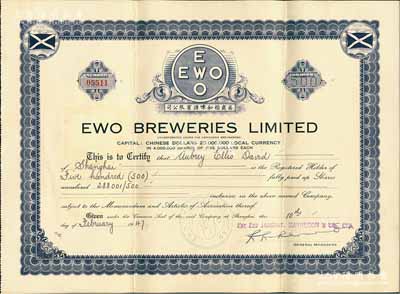 05511
500
E
EWO
O
EWO BREWERIES LIMITED
CAPITAL: CHINESE DOLLARS 20,000,000 LOCAL CURRENCY
IN 4,000,000 SHARES OF FIVE DOLLARS EACH
This is to Certify that Aubrey Ellis David
of Shanghai is the Registered Holder of
Five hundred (500) fully paid up Shares
numbered 288001/500 inclusive in the above named Company,
subject to the Memorandum and Articles of Association thereof.
Given under the Common Seal of the said Company at Shanghai the 10th
day of February 1947
GENERAL MANAGERS